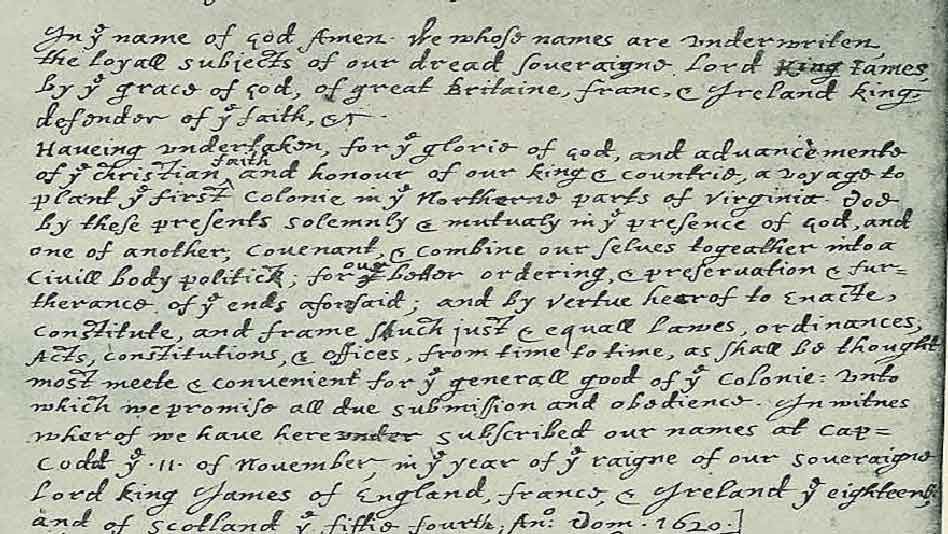 In yͤ name of God Amen. We whose names are underwriten,
the loyall subjects of our dread soveraigne Lord King James,
by yͤ grace of God, of great Britaine, franc, & Ireland king,
defender of yͤ faith, &c.
Haveing undertaken, for yͤ glorie of God, and advancemente
of yͤ christian faith and honour of our king & countrie, a voyage to
plant yͤ first colonie in yͤ Northerne parts of Virginia. Doe
by these presents solemnly & mutualy in yͤ presence of God, and
one of another, covenant, & combine our selves togeather into a
Civill body politick; for our better ordering, & preservation & fur=
therance of yͤ ends aforsaid; and by vertue hearof to Enacte,
constitute, and frame shuch just & equall Lawes, ordinances,
Acts, constitutions, & offices, from time to time, as shall be thought
most meete & convenient for yͤ generall good of yͤ Colonie: unto
which we promise all due submission and obedience. In witnes
wherof we have hereunder subscribed our names at Cap=
Codd yͤ .11. of November, in yͤ year of yͤ raigne of our soveraigne
Lord king James of England, france, & Ireland yͤ eighteenth
and of Scotland yͤ fiftie fourth. Anͦ: Dom. 1620.]